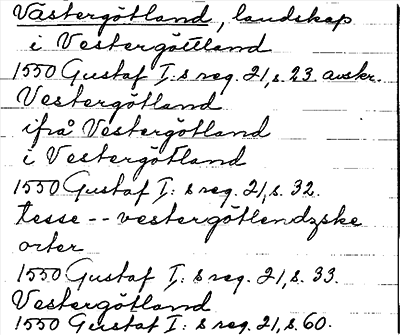 Västergötland, landskap
i Vestergöttland
1550 Gustaf I:s reg. 21, s. 23. avskr.
Vestergötland
ifrå Vestergötland
i Vestergötland
1550 Gustaf I:s reg. 21, s. 32.
tesse -- vestergötlendzske
orter
1550 Gustaf I:s reg. 21, s. 33.
Vestergötland
1550 Gustaf I:s reg. 21, s. 60.